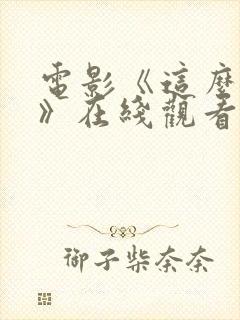 電影《這麼
》在綫觀看
御子柴奈奈